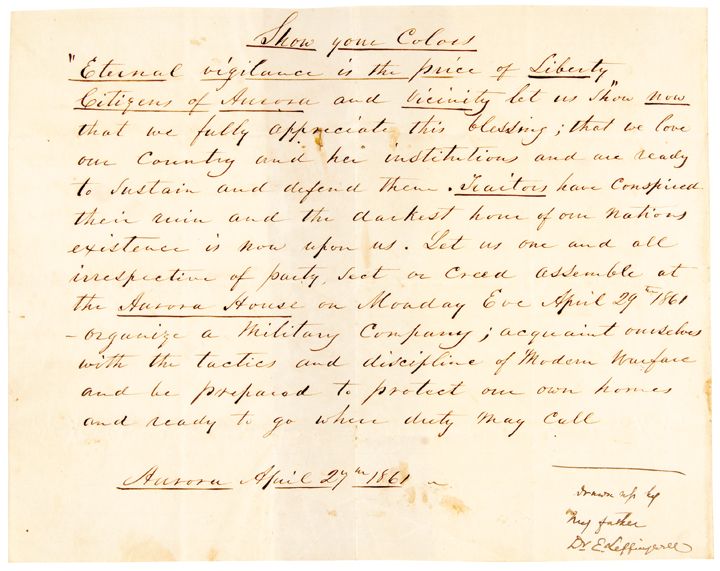 Show your Colors
"Eternal vigilance is the price of Liberty"
Citizens of Aurora and vicinity let us Show now
that we fully appreciate this blessing; that we love
our Country and her institutions and are ready
to Sustain and defend them. Traitors have Conspired
their ruin and the darkest hour of our Nations
existence is now upon us. Let us one and all
irrespective of party, Sect or Creed assemble at
the Aurora House on Monday Eve April 29th 1861
-organize a Military Company; acquaint ourselves
with the tactics and discipline of Modern Warfare
and be prepared to protect our own homes
and ready to go where duty May Call
Aurora April 27th 1861
Drawn up by
My father
Dr. E. Leffingwell